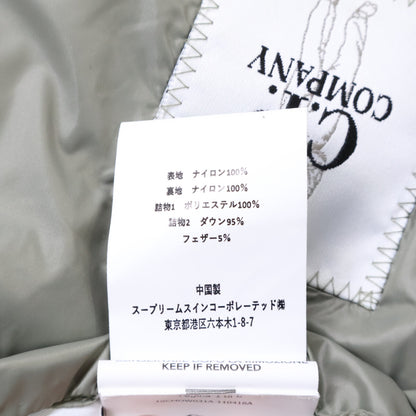 C.P.
COMPANY
表地 ナイロン100%
裏地 ナイロン100%
詰物1 ポリエステル100%
詰物2 ダウン95%
フェザー5%
中国製
スープリームスインコーポレーテッド㈱
東京都港区六本木1-8-7
KEEP IF REMOVED